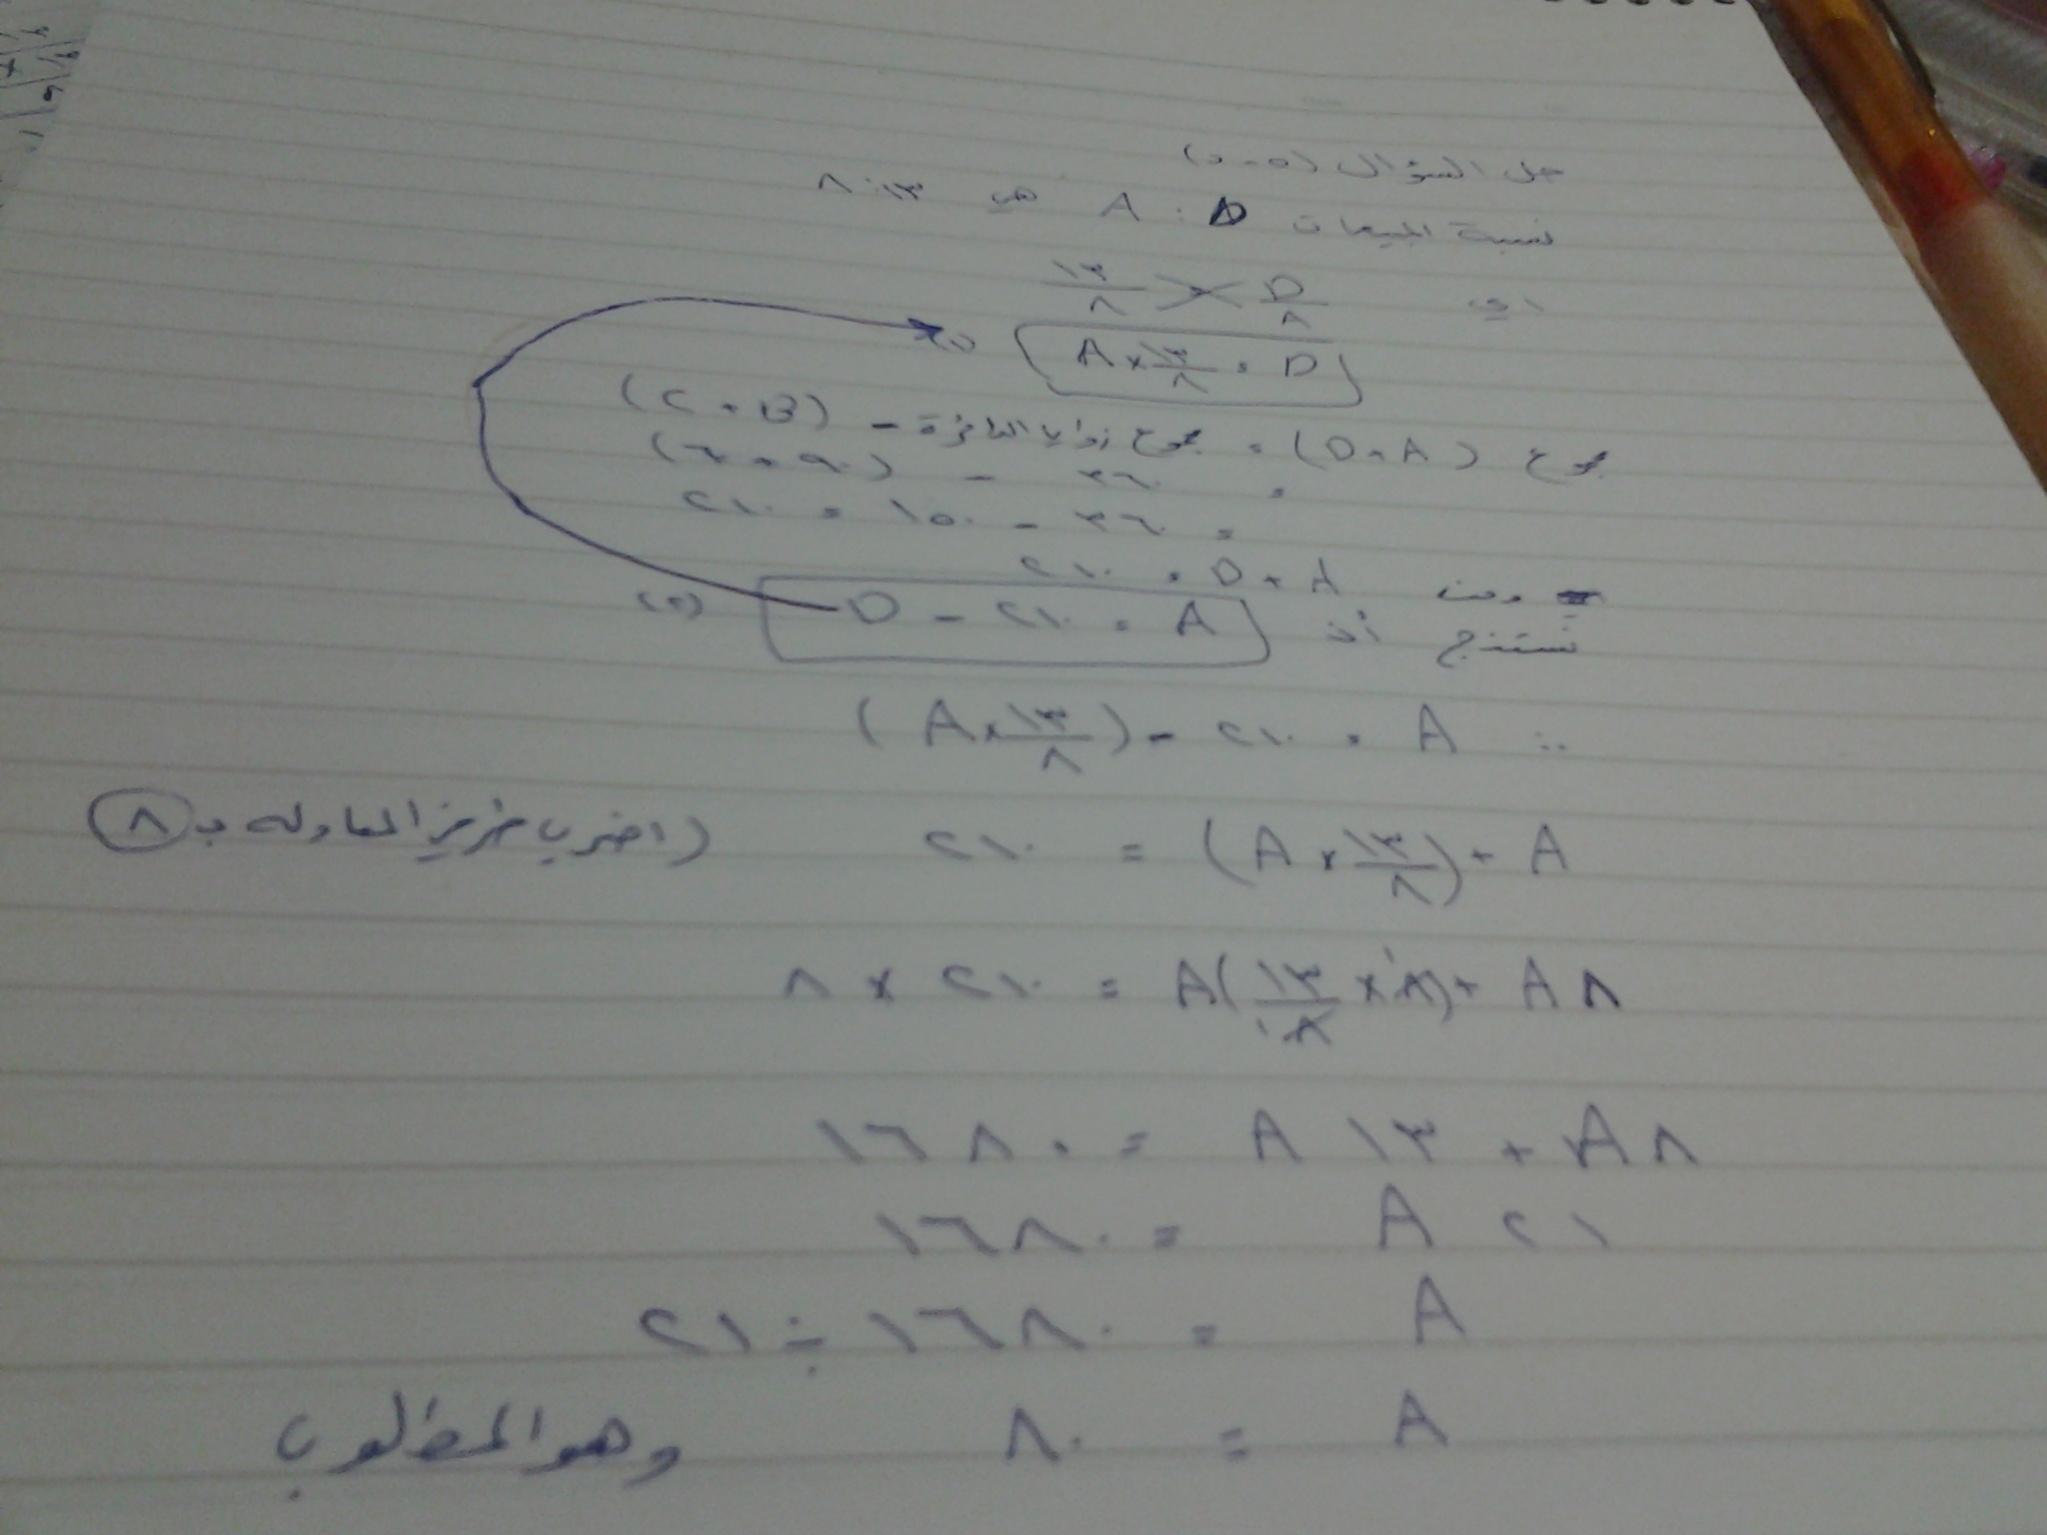 حل السؤال (٥-د)
نسبة المبيعات A : D هي ١٣ : ٨
أي D/A = ١٣/٨
A × ١٣/٨ = D (١)
مجموع (D + A) = مجموع زوايا الدائرة - (C + B)
= ٣٦٠ - (٦٠ + ٩٠)
= ٣٦٠ - ١٥٠ = ٢١٠
ومنه A + D = ٢١٠
نستنتج أن A = ٢١٠ - D (٢)
∴ A = ٢١٠ - (A × ١٣/٨)
A + (A × ١٣/٨) = ٢١٠ (اضرب طرفي المعادلة بـ ٨
٨ A + (٨ × ١٣/٨) A = ٢١٠ × ٨
٨ A + ١٣ A = ١٦٨٠
٢١ A = ١٦٨٠
A = ١٦٨٠ ÷ ٢١
A = ٨٠ وهو المطلوب